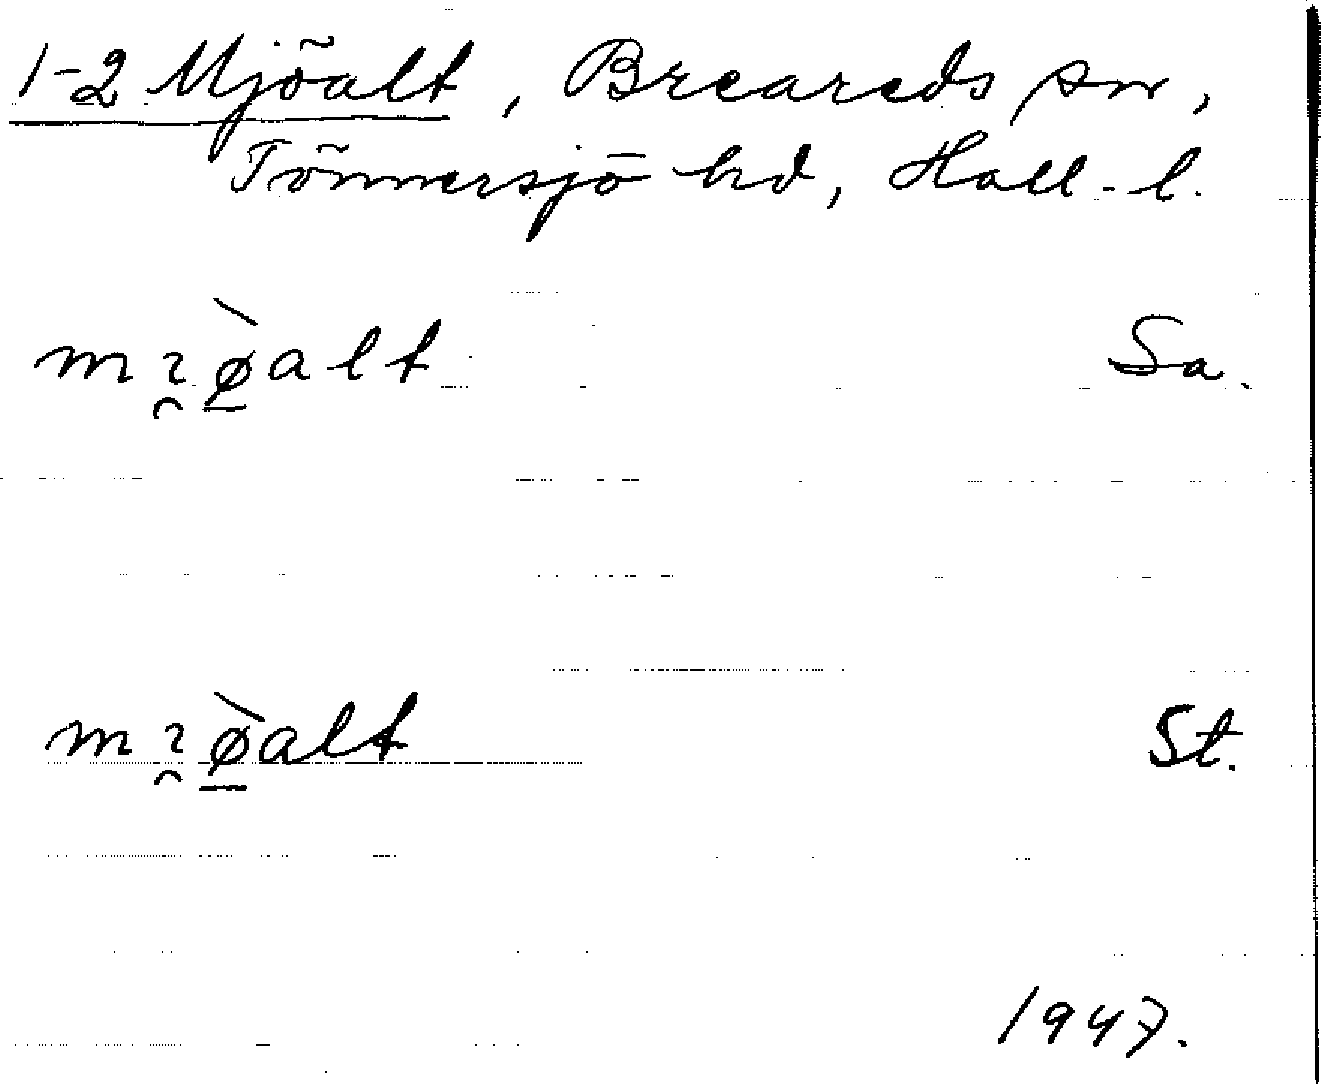 1-2 Mjöalt, Breareds sn,
Tönnersjö hd, Hall-l.
mɿ̯ø̠̀alt Sa.
mɿ̯ø̠̀alt St.
1947.